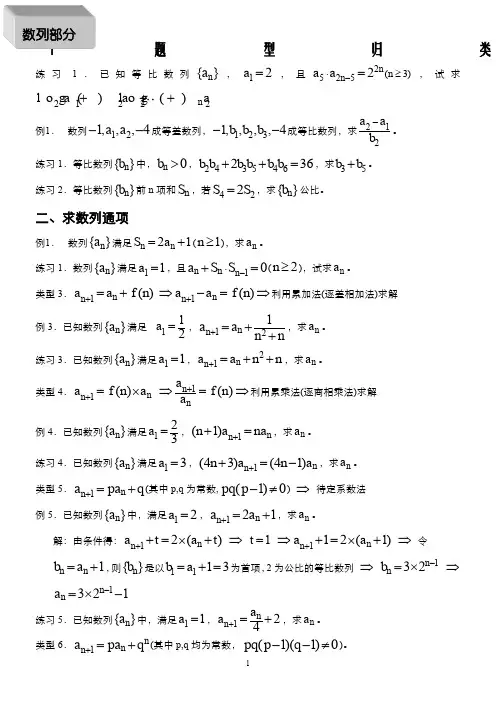 数列部分
题 型 归 类
练习1.已知等比数列{aₙ}，a₁=2，且a₅·a₂ₙ₋₅=2²ⁿ(n≥3)，试求
例1. 数列−1,a₁,a₂,−4成等差数列，−1,b₁,b₂,b₃,−4成等比数列，求(a₂−a₁)/b₂。
练习1.等比数列{bₙ}中，bₙ>0，b₂b₄+2b₃b₅+b₄b₆=36，求b₃+b₅。
练习2.等比数列{bₙ}前n项和Sₙ，若S₄=2S₂，求{bₙ}公比。
二、求数列通项
例1. 数列{aₙ}满足Sₙ=2aₙ+1(n≥1)，求aₙ。
练习1.数列{aₙ}满足a₁=1，且aₙ+Sₙ·Sₙ₋₁=0(n≥2)，试求aₙ。
类型3.aₙ₊₁=aₙ+f(n)⇒aₙ₊₁−aₙ=f(n)⇒利用累加法(逐差相加法)求解
例3.已知数列{aₙ}满足 a₁=1/2，aₙ₊₁=aₙ+1/(n²+n)，求aₙ。
练习3.已知数列{aₙ}满足a₁=1，aₙ₊₁=aₙ+n²+n，求aₙ。
类型4.aₙ₊₁=f(n)×aₙ⇒aₙ₊₁/aₙ=f(n)⇒利用累乘法(逐商相乘法)求解
例4.已知数列{aₙ}满足a₁=2/3，(n+1)aₙ₊₁=naₙ，求aₙ。
练习4.已知数列{aₙ}满足a₁=3，(4n+3)aₙ₊₁=(4n−1)aₙ，求aₙ。
类型5.aₙ₊₁=paₙ+q(其中p,q为常数,pq(p−1)≠0)⇒ 待定系数法
例5.已知数列{aₙ}中，满足a₁=2，aₙ₊₁=2aₙ+1，求aₙ。
解:由条件得:aₙ₊₁+t=2×(aₙ+t)⇒t=1⇒aₙ₊₁+1=2×(aₙ+1)⇒令
bₙ=aₙ+1,则{bₙ}是以b₁=a₁+1=3为首项,2为公比的等比数列⇒bₙ=3×2ⁿ⁻¹⇒
aₙ=3×2ⁿ⁻¹−1
练习5.已知数列{aₙ}中，满足a₁=1，aₙ₊₁=aₙ/4+2，求aₙ。
类型6.aₙ₊₁=paₙ+qⁿ(其中p,q均为常数，pq(p−1)(q−1)≠0)。
1